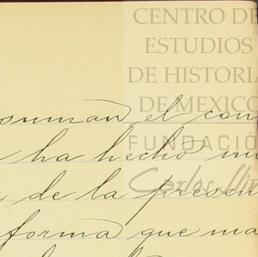 CENTRO DE
ESTUDIOS
DE HISTORIA
DE MEXICO
FUNDACIÓ
Carlos Sli
suman el con
ha hecho
de la presen
forma que ma